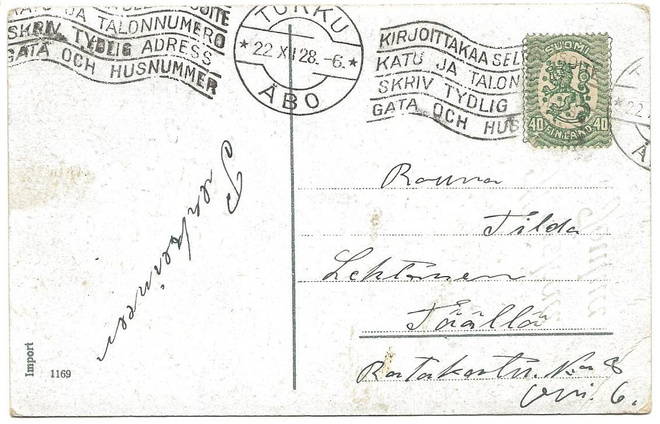 OITE
KATU JA TALONNUMERO
SKRIV TYDLIG ADRESS
GATA OCH HUSNUMMER
TURKU
22 XII 28.-6.
ÅBO
KIRJOITTAKAA SEL
KATU JA TALON
SKRIV TYDLIG
GATA OCH HUS
SUOMI
40 FINLAND 40
22
Å
Rouva
Tilda
Lehtinen
Täällä
8
6.
Import
1169